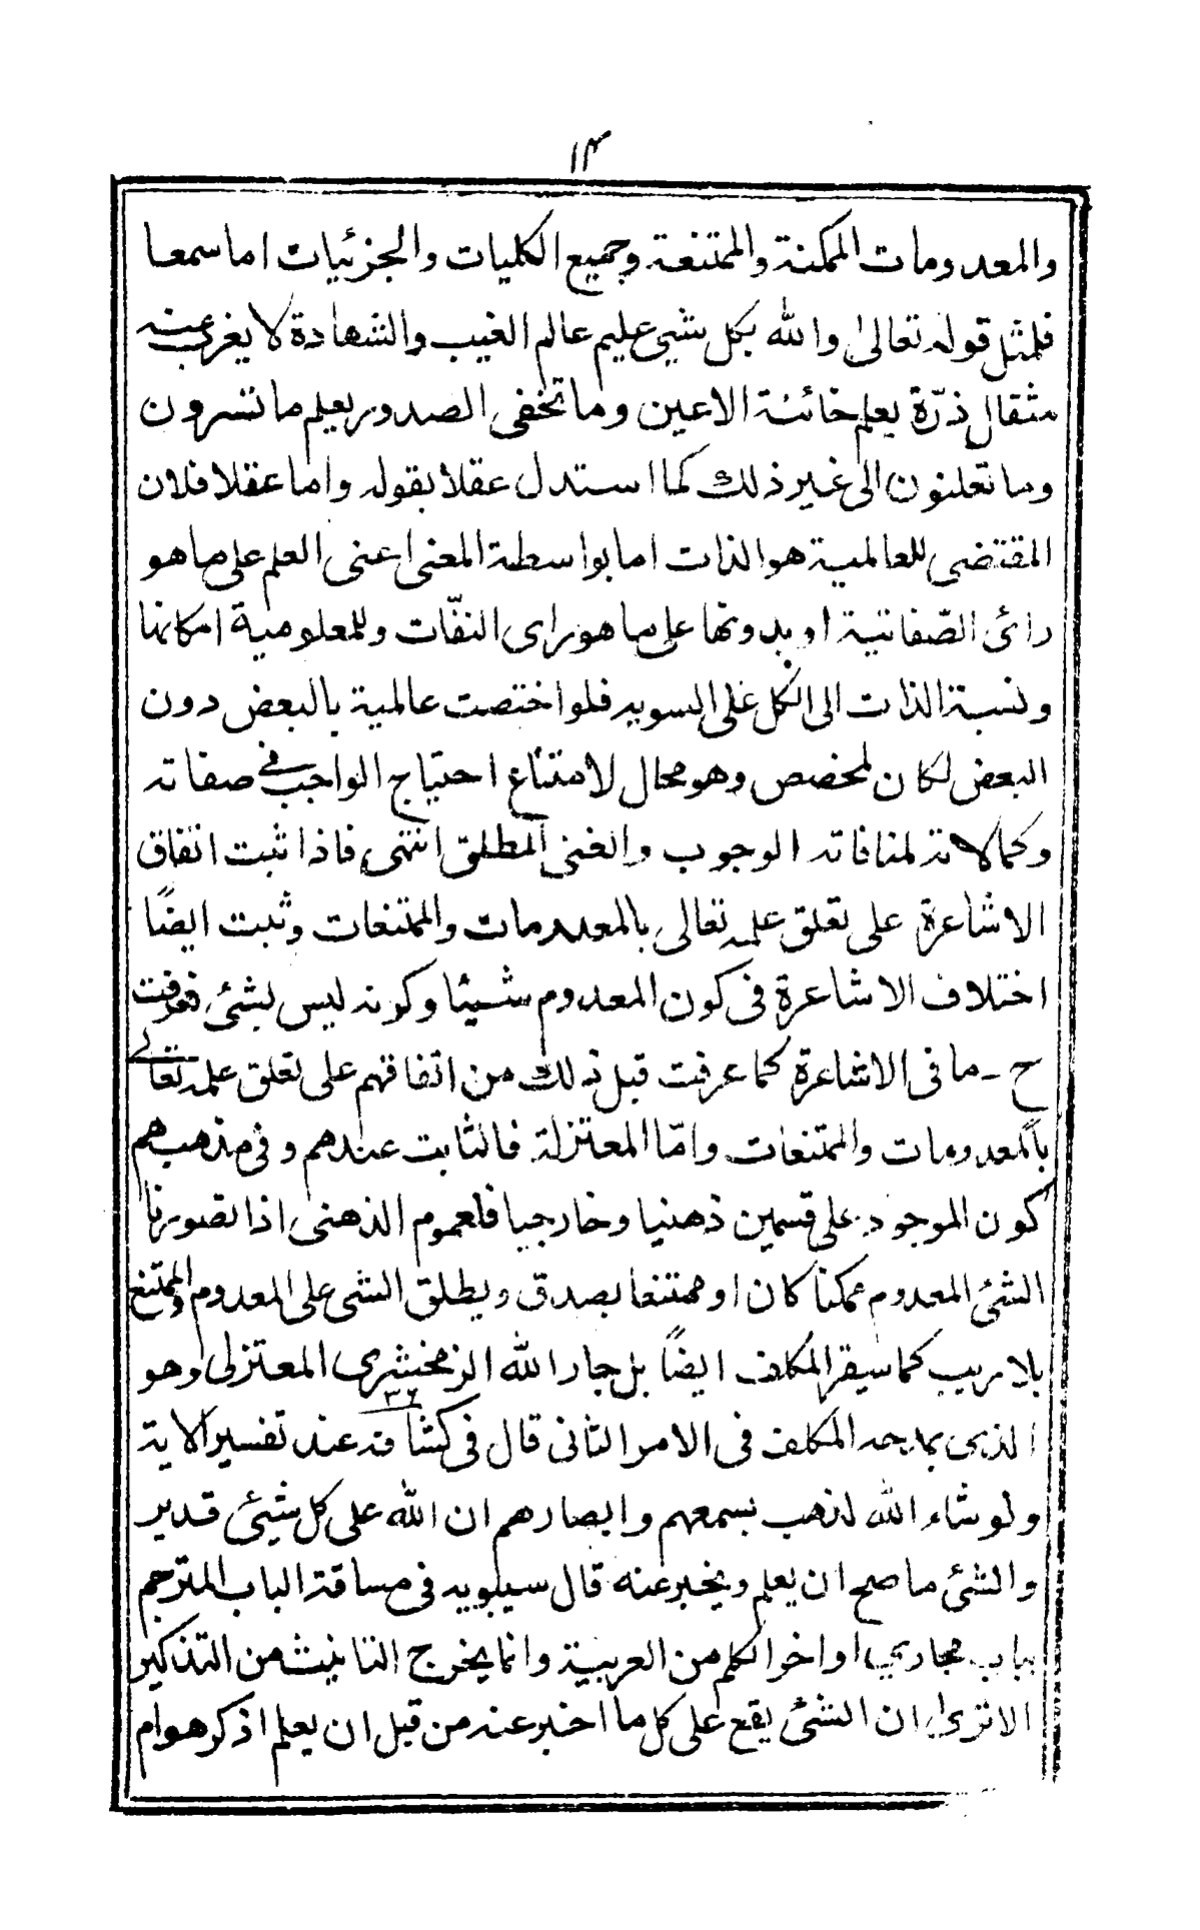 ۱۴
والمعدومات الممكنة والممتنعة وجميع الكليات والجزئيات اما سمعا
فلمثل قوله تعالى والله بكل شيئ عليم عالم الغيب والشهادة لا يغرب عنه
مثقال ذرّة يعلم خائنة الاعين وما تخفى الصدور يعلم ما تسرون
وما تعلنون الى غير ذلك كما استدل عقلا بقوله واما عقلا فلان
المقتضى للعالمية هو الذات اما بواسطة المعنى اعنى العلم على ما هو
رائ الصّفاتية او بدونها على ما هو راى النفّات وللمعلومية امكانها
ونسبة الذات الى الكل على السويه فلو اختصت عالمية بالبعض دون
البعض لكان لمخصص وهو محال لامتناع احتياج الواجب في صفاته
وكمالاته لمنافاته الوجوب والغنى المطلق انتهى فاذا ثبت اتفاق
الاشاعرة على تعلق علمه تعالى بالمعدومات والممتنعات وثبت ايضًا
اختلاف الاشاعرة فى كون المعدوم شيئا وكونه ليس بشئ فعرفت
ح ـ ما فى الاشاعرة كما عرفت قبل ذلك من اتفاقهم على تعلق علمه تعالے
بالمعدومات والممتنعات وامّا المعتزلة فالثابت عندهم وفى مذهبهم
كون الموجود على قسمين ذهنيا وخارجيا فلعموم الذهنى اذا تصورنا
الشئ المعدوم ممكنا كان او ممتنعا بصدق ويطلق الشى على المعدوم والممتنع
بلا ريب كما سيقر المكلف ايضًا بل جار الله الزمخشرى المعتزلى وهو
الذى يمدحه المكلف فى الامر الثانى قال فى كشافه عند تفسير الاية
ولو شاء الله لذهب بسمعهم وابصارهم ان الله على كل شيئ قدير
والشئ ما صح ان يعلم ويخبر عنه قال سيبويه فى مساقة الباب المترجم
بباب مجارى اواخر الكلم من العربية وانما يخرج التانيث من التذكير
الا ترى ان الشئ يقع على كل ما اخبر عنه من قبل ان يعلم اذكر هو ام